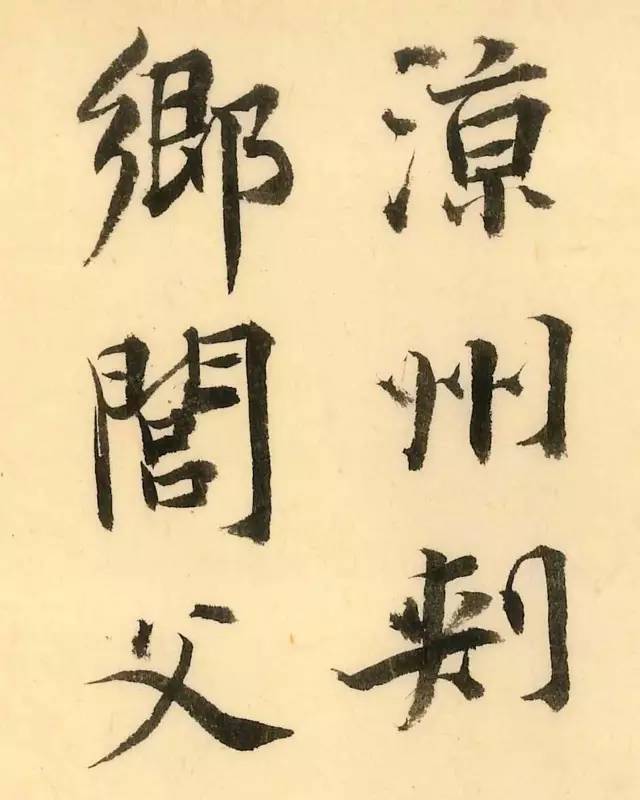 涼州刺
鄉閭父